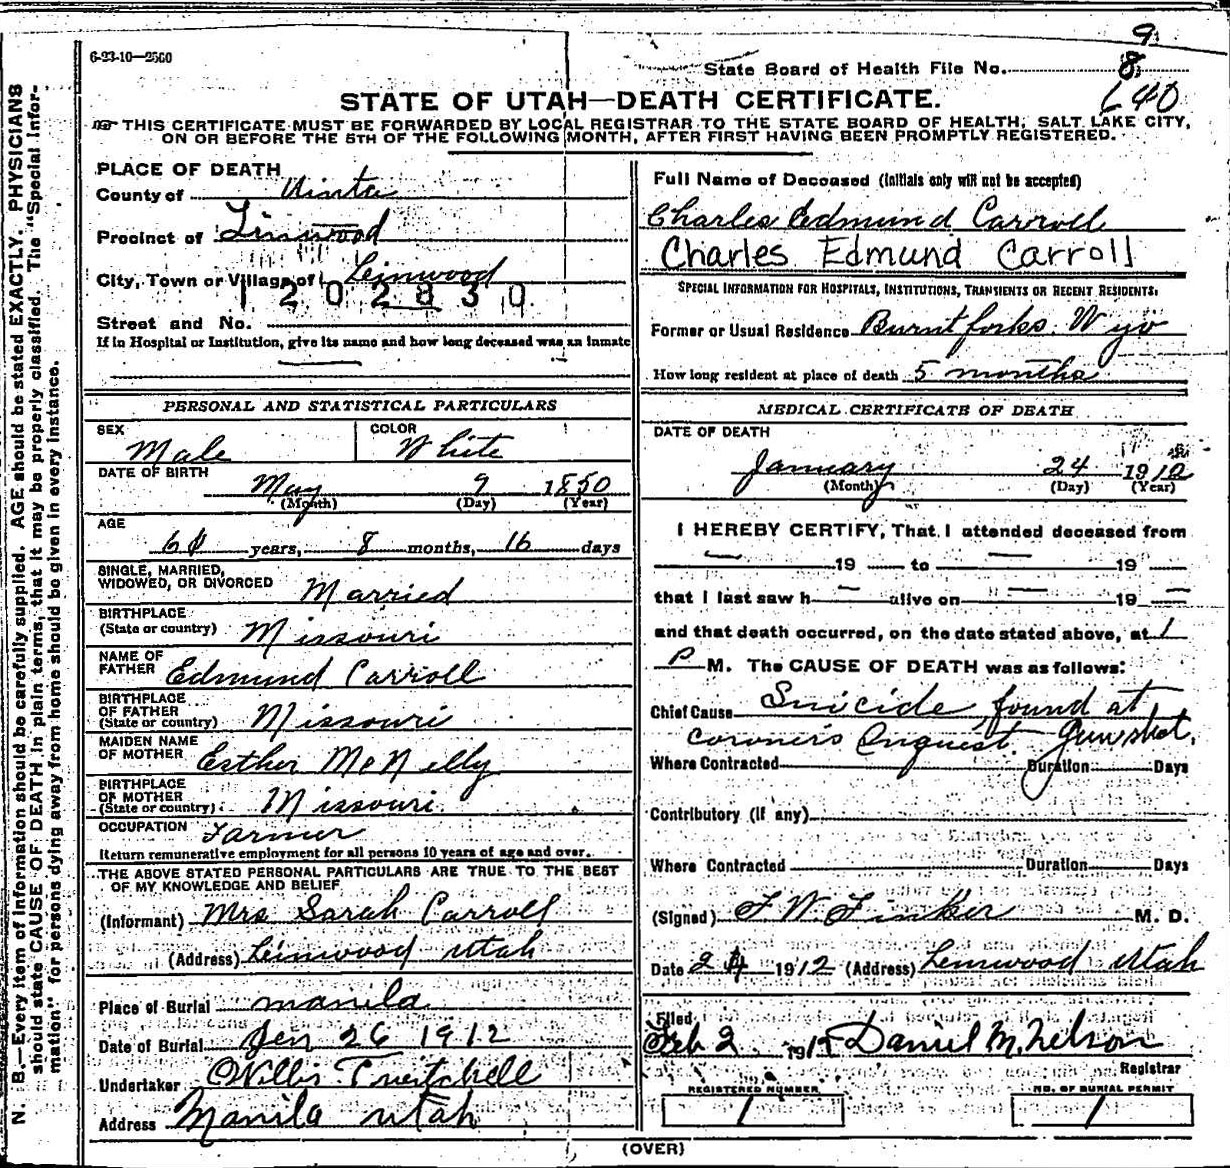 6-23-10—2500
9
State Board of Health File No. 8
640
STATE OF UTAH—DEATH CERTIFICATE.
THIS CERTIFICATE MUST BE FORWARDED BY LOCAL REGISTRAR TO THE STATE BOARD OF HEALTH, SALT LAKE CITY,
ON OR BEFORE THE 5TH OF THE FOLLOWING MONTH, AFTER FIRST HAVING BEEN PROMPTLY REGISTERED.
N. B.—Every item of information should be carefully supplied. AGE should be stated EXACTLY. PHYSICIANS
should state CAUSE OF DEATH in plain terms, that it may be properly classified. The "Special Infor-
mation" for persons dying away from home should be given in every instance.
PLACE OF DEATH
County of Uinta
Precinct of Linwood
City, Town or Village of Leinwood
1 2 0 2 8 3 0
Street and No.
If in Hospital or Institution, give its name and how long deceased was an inmate
PERSONAL AND STATISTICAL PARTICULARS
SEX Male COLOR White
DATE OF BIRTH May 9 1850
(Month) (Day) (Year)
AGE
61 years, 8 months, 16 days
SINGLE, MARRIED,
WIDOWED, OR DIVORCED Married
BIRTHPLACE
(State or country) Missouri
NAME OF
FATHER Edmund Carroll
BIRTHPLACE
OF FATHER
(State or country) Missouri
MAIDEN NAME
OF MOTHER Esther McNelly
BIRTHPLACE
OF MOTHER
(State or country) Missouri
OCCUPATION Farmer
Return remunerative employment for all persons 10 years of age and over.
THE ABOVE STATED PERSONAL PARTICULARS ARE TRUE TO THE BEST
OF MY KNOWLEDGE AND BELIEF
(Informant) Mrs Sarah Carroll
(Address) Leinwood Utah
Place of Burial manila
Date of Burial Jen 26 1912
Undertaker Willis Twitchell
Address Manila Utah
Full Name of Deceased (Initials only will not be accepted)
Charles Edmund Carroll
Charles Edmund Carroll
SPECIAL INFORMATION FOR HOSPITALS, INSTITUTIONS, TRANSIENTS OR RECENT RESIDENTS.
Former or Usual Residence Burnt forks. Wyo
How long resident at place of death 5 months
MEDICAL CERTIFICATE OF DEATH
DATE OF DEATH
January 24 1912
(Month) (Day) (Year)
I HEREBY CERTIFY, That I attended deceased from
19 to 19
that I last saw h alive on 19
and that death occurred, on the date stated above, at 1
P M. The CAUSE OF DEATH was as follows:
Chief Cause Suicide, found at
coroners Enquest. Gunshot.
Where Contracted Duration Days
Contributory (if any)
Where Contracted Duration Days
(Signed) F. W. Tinker M. D.
Date 24 1912 (Address) Lenwood Utah
Filed
Feb 2 1912 Daniel M. Nelson
Registrar
REGISTERED NUMBER NO. OF BURIAL PERMIT
1 1
(OVER)